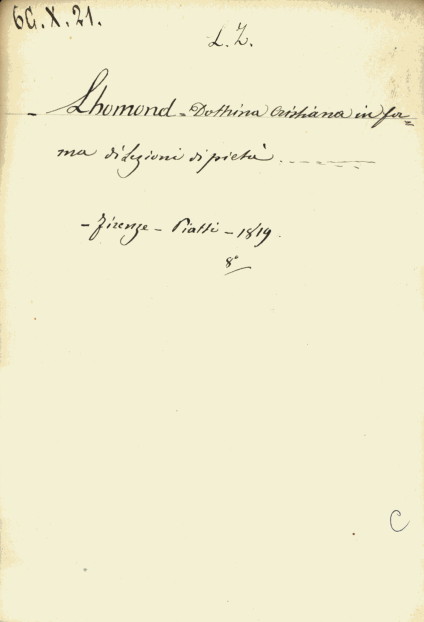 6G.X.21.
L. Z.
- Lhomond = Dottrina Cristiana in for=
ma di Lezioni di pietà
- Firenze - Piatti - 1819.
8°
C